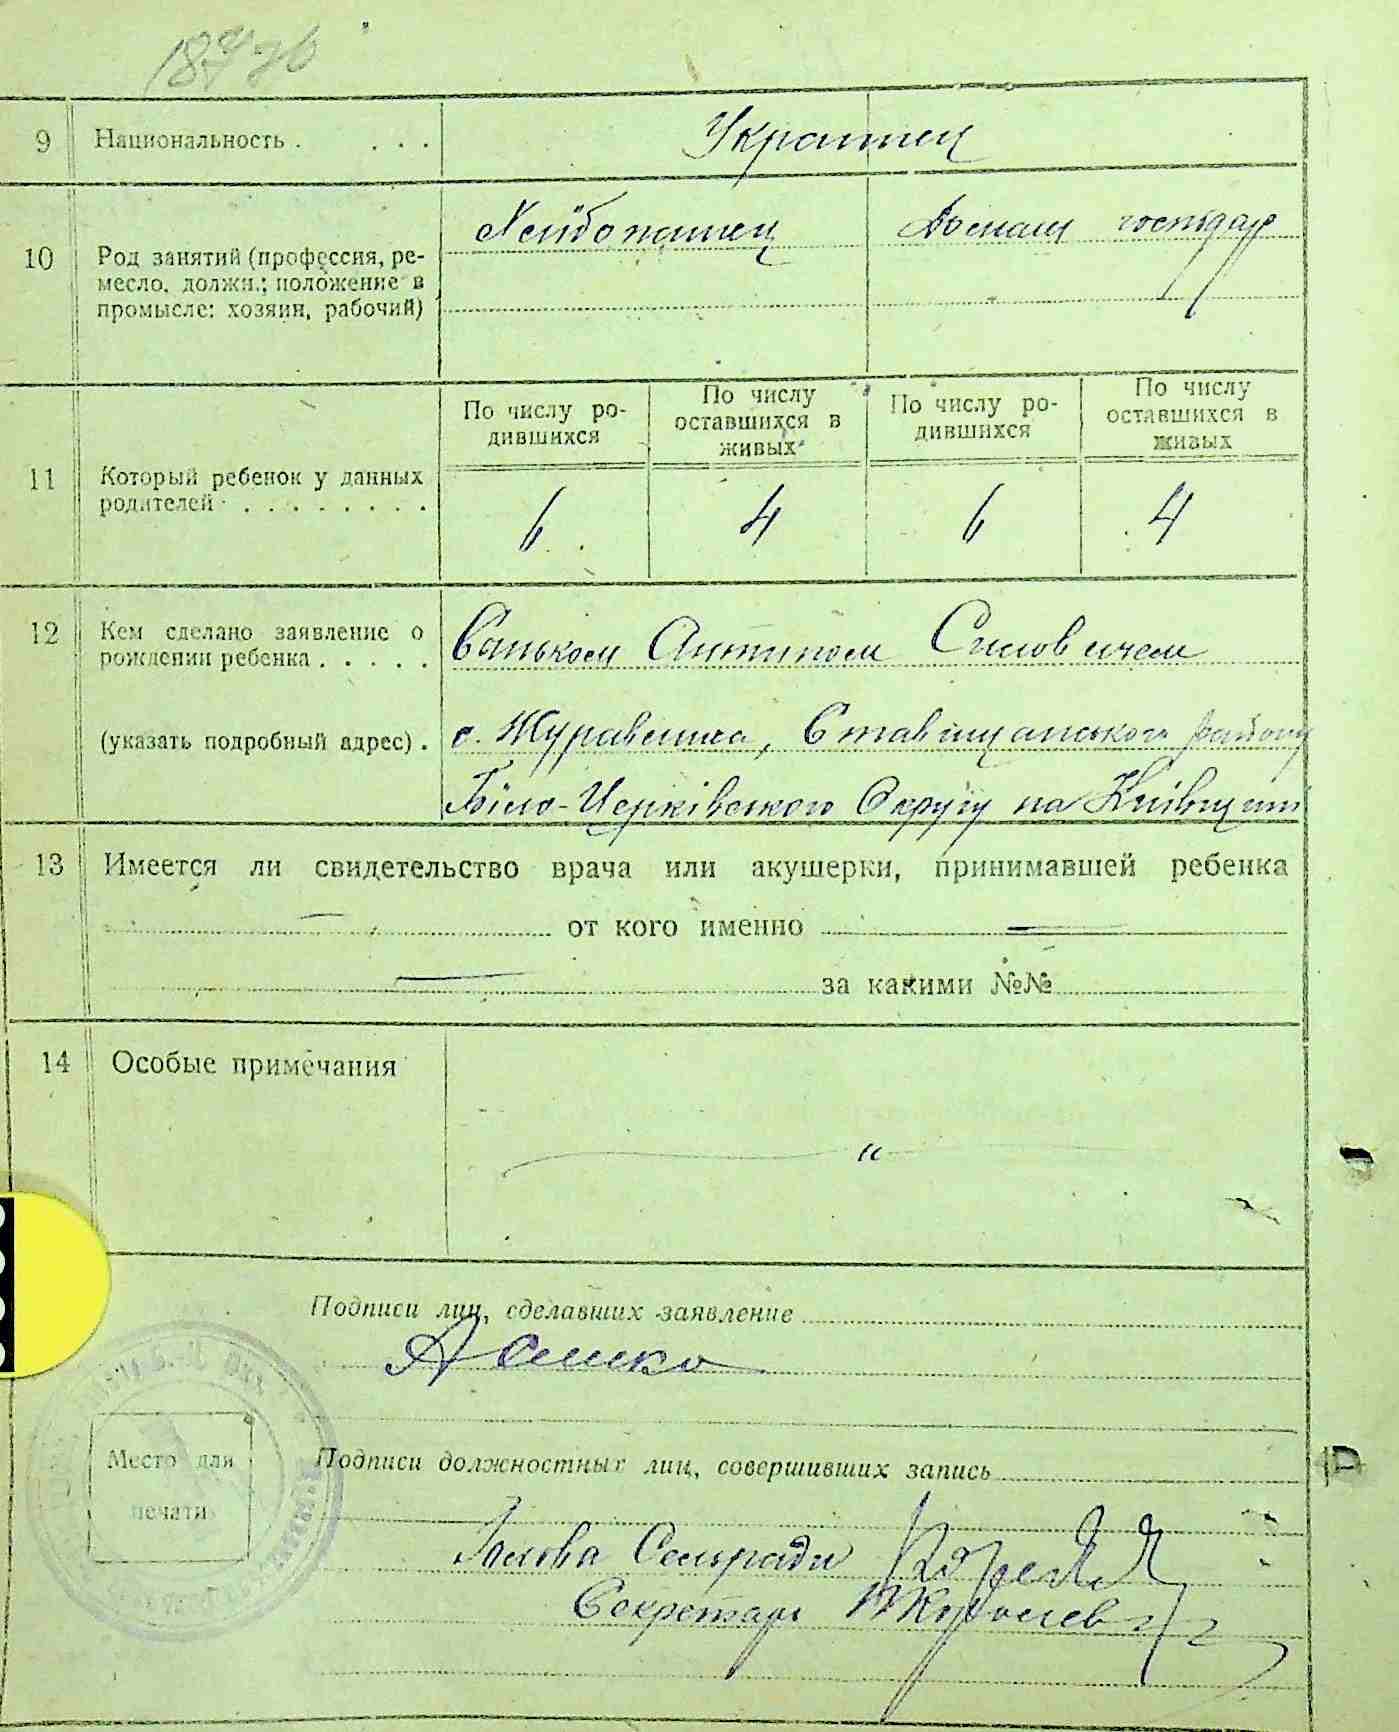 9 Национальность . . . . Украинец
10 Род занятий (профессия, ре-
месло, должн.; положение в
промысле: хозяин, рабочий)
Хлібопашец Домашн господар
11 Который ребенок у данных
родителей . . . . . . . .
По числу ро-
дившихся
По числу
оставшихся в
живых
По числу ро-
дившихся
По числу
оставшихся в
живых
6 4 6 4
12 Кем сделано заявление о
рождении ребенка . . . . .
Саньком Антипом Силовичем
(указать подробный адрес) . с. Журавлиха, Ставищанського району
Біло-Церківського Округу на Київщині
13 Имеется ли свидетельство врача или акушерки, принимавшей ребенка
от кого именно
за какими №№
14 Особые примечания
Подписи лиц, сделавших заявление
Место для
печати
Подписи должностных лиц, совершивших запись
Голова Сельради
Секретарь